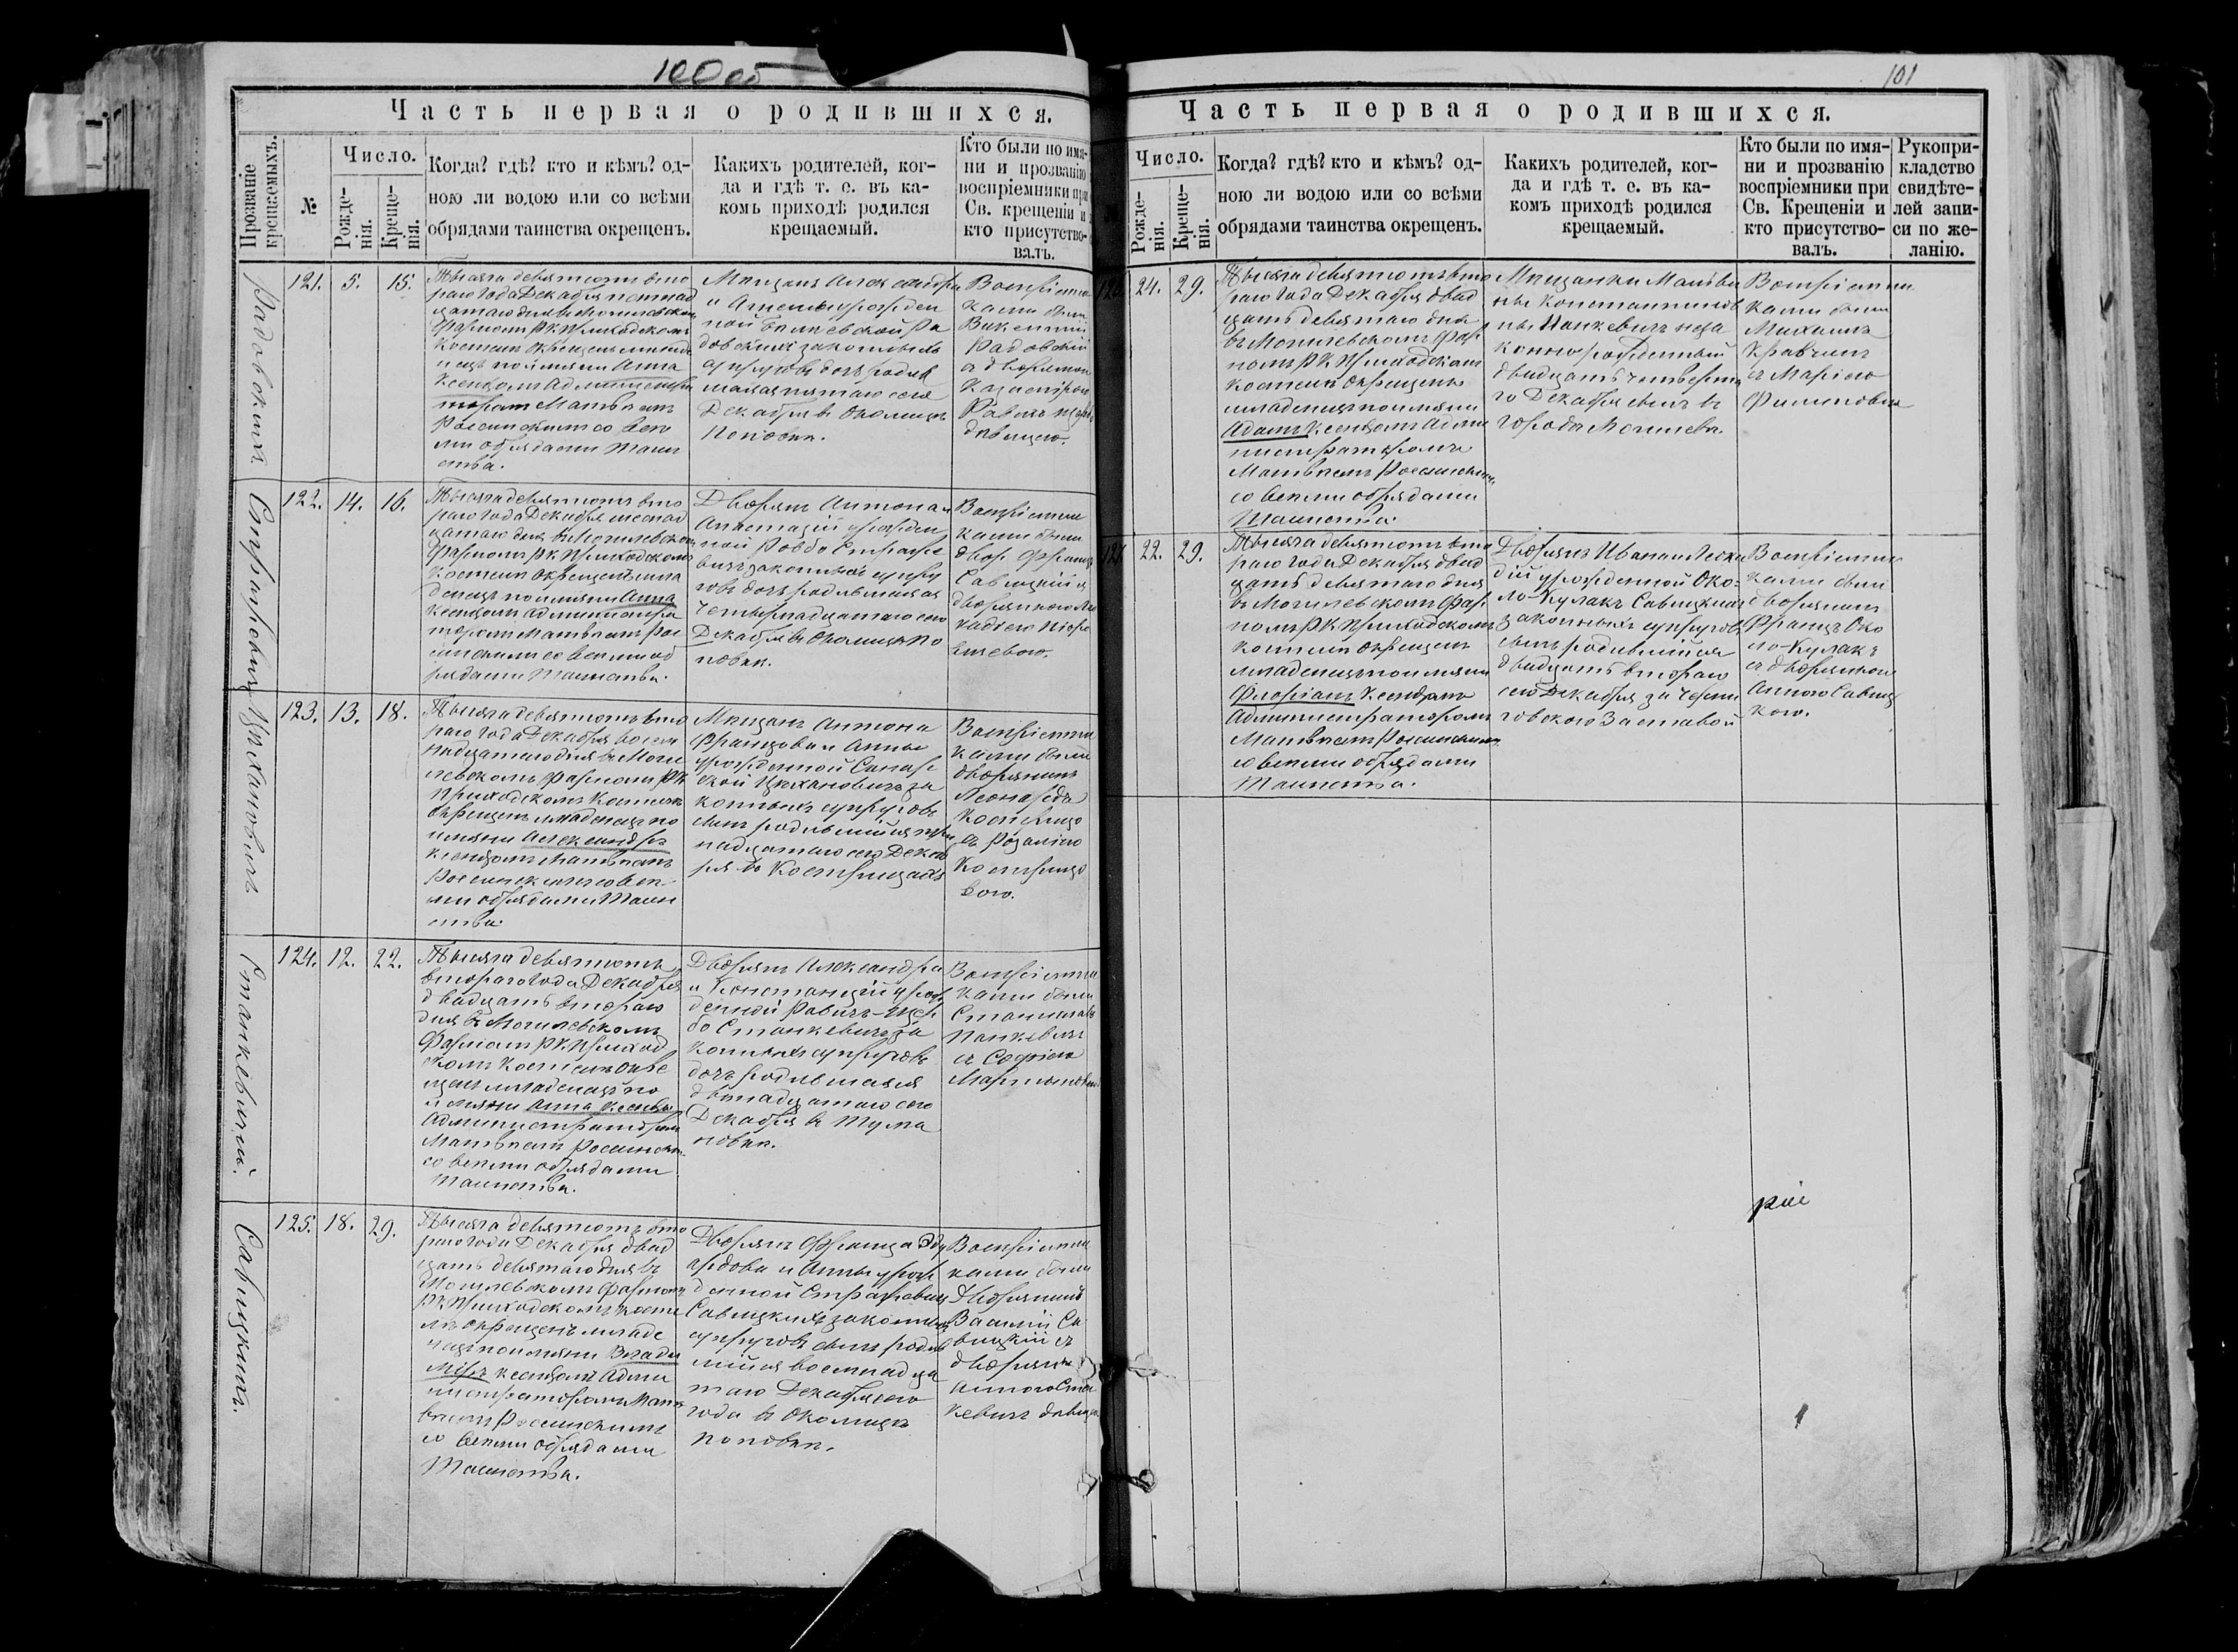 100 об
Часть первая о родившихся.
Прозваніе крещаемыхъ.
№
Число.
Рожденія.
Крещенія.
Когда? гдѣ? кто и кѣмъ? од-
ною ли водою или со всѣми
обрядами таинства окрещенъ.
Какихъ родителей, ког-
да и гдѣ т. е. въ ка-
комъ приходѣ родился
крещаемый.
Кто были по имя-
ни и прозванію
воспріемники при
Св. крещеніи и
кто присутство-
валъ.
Радовскихъ
121. 5. 15.
Тысяча девятьсотъ вто
раго года Декабря пятнад
цатаго дня въ Могилевскомъ
Фарномъ РК Приходскомъ
Костелѣ окрещенъ младе
нецъ по имяни Анна
Ксендзомъ Админист
раторомъ Матвѣемъ
Россинскимъ со всѣ
ми обрядами Таин
ства.
Мѣщанъ Александра
Радовскихъ законныхъ
супруговъ дочь родив
шаяся пятаго сего
Декабря въ околицѣ
Поповкѣ.
Воспріемни
ками были
Викентій
Радовскій
дѣвицею.
122. 14. 16.
Тысяча девятьсотъ вто
раго года Декабря шестнад
цатаго дня въ Могилевскомъ
Фарномъ РК Приходскомъ
Костелѣ окрещенъ мла
денецъ по имяни Анна
Ксендзомъ Администра
торомъ Матвѣемъ Рос
синскимъ со всѣми об
рядами Таинства.
Дворянъ Антона и
Анастазіи урожден
ной
законныхъ супру
говъ дочь родившаяся
четырнадцатаго сего
Декабря въ околицѣ По
повкѣ.
Воспріемни
ками были
двор. Францъ
Савицкій и
Цѣхановичъ
123. 13. 18.
Тысяча девятьсотъ вто
раго года Декабря восем
надцатаго дня въ Моги
левскомъ Фарномъ РК
Приходскомъ Костелѣ
окрещенъ младенецъ по
имяни Александръ
Ксендзомъ Матвѣемъ
Россинскимъ со всѣ
ми обрядами Таин
ства.
Мѣщанъ Антона
Францова и Анны
урожденной
Цѣхановичъ за
конныхъ супруговъ
сынъ родившійся три
надцатаго сего Декаб
ря въ Кострицахъ
Воспріемни
ками были
дворянинъ
Леонардъ
съ Розаліею
Станкевичей.
124. 12. 22.
Тысяча девятьсотъ
втораго года Декабря
двадцать втораго
дня въ Могилевскомъ
Фарномъ РК Приход
скомъ Костелѣ окре
щенъ младенецъ по
имяни Анна Ксендзомъ
Администраторомъ
Матвѣемъ Россинским
со всѣми обрядами
Таинства.
Дворянъ Александра
и Констанціи урож
денной Равичъ-Щер
бо Станкевичъ за
конныхъ супруговъ
дочь родившаяся
двѣнадцатаго сего
Декабря въ Тума
новкѣ.
Воспріемни
ками были
Станиславъ
Панкевичъ
съ Софіею
Савицкихъ.
125. 18. 29.
Тысяча девятьсотъ вто
раго года Декабря двад
цать девятаго дня въ
Могилевскомъ Фарномъ
РК Приходскомъ Косте
лѣ окрещенъ младе
нецъ по имяни Влади
міръ Ксендзомъ Адми
нистраторомъ Мат
вѣемъ Россинскимъ
со всѣми обрядами
Таинства.
Дворянъ Франца Эду
ардова и Анны урож
денной
Савицкихъ законныхъ
супруговъ сынъ родив
шійся восемнадца
таго Декабря сего
года въ околицѣ
Поповкѣ.
Воспріемни
ками были
дворянинъ
Василій Са
вицкій съ
дворянк
Анною Стан
кевичъ дѣвицею
101
Часть первая о родившихся.
Число.
Рожденія.
Крещенія.
Когда? гдѣ? кто и кѣмъ? од-
ною ли водою или со всѣми
обрядами таинства окрещенъ.
Какихъ родителей, ког-
да и гдѣ т. е. въ ка-
комъ приходѣ родился
крещаемый.
Кто были по имя-
ни и прозванію
воспріемники при
Св. Крещеніи и
кто присутство-
валъ.
Рукопри-
кладство
свидѣте-
лей запи-
си по же-
ланію.
24. 29.
Тысяча девятьсотъ вто
раго года Декабря двад
цать девятаго дня
въ Могилевскомъ Фар
номъ РК Приходскомъ
Костелѣ окрещенъ
младенецъ по имяни
Адамъ Ксендзомъ Адми
нистраторомъ
Матвѣемъ Россинским
со всѣми обрядами
Таинства.
Мѣщанки
Константинов
ны Панкевичъ неза
коннорожденный
двадцать четверта
го Декабря сынъ въ
городѣ Могилевѣ.
Воспріемни
ками были
Михаилъ
Кравчин
съ Маріею
Филипович
127. 22. 29.
Тысяча девятьсотъ вто
раго года Декабря двад
цать девятаго дня
въ Могилевскомъ Фар
номъ РК Приходскомъ
Костелѣ окрещенъ
младенецъ по имяни
Флоріанъ Ксендзомъ
Администраторомъ
Матвѣемъ Россинскимъ
со всѣми обрядами
Таинства.
Дворянъ Ивана и Леока
діи урожденной Око-
ло-Кулакъ Савицкихъ
законныхъ супруговъ
сынъ родившійся
двадцать втораго
сего Декабря за Черни
говскою Заставой
Воспріемни
ками были
дворянинъ
Францъ Око
ло-Кулакъ
съ дворянкою
Анною Савиц
кою.